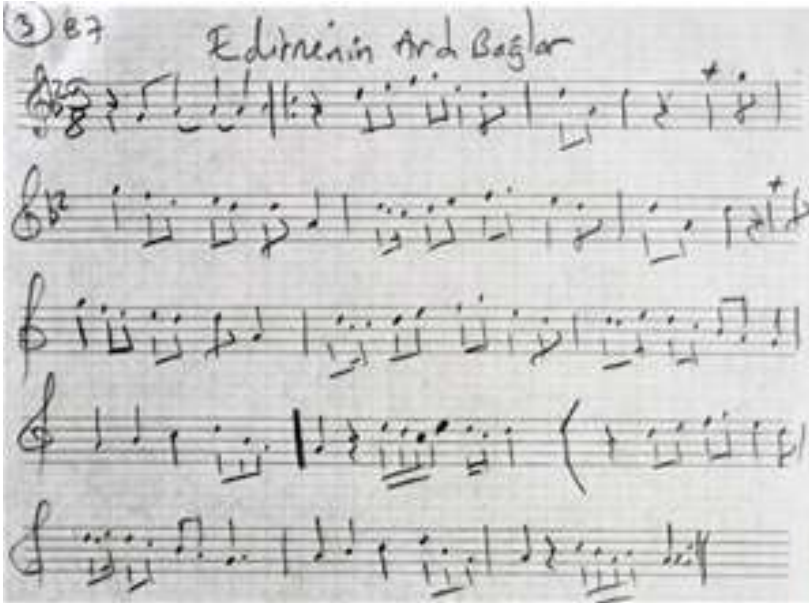 3 87
Edirnenin Ardı Bağlar